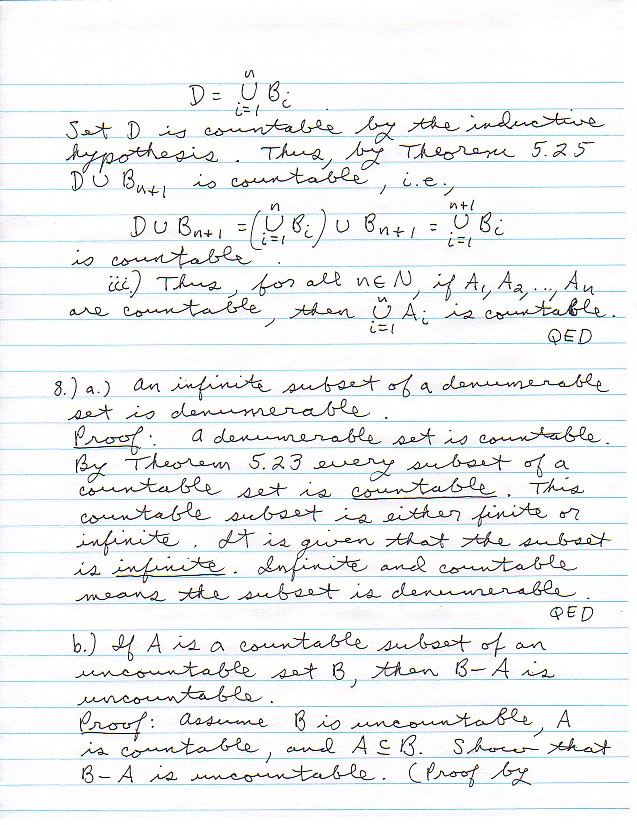 D = ⋃ⁿᵢ₌₁ Bᵢ
Set D is countable by the inductive
hypothesis. Thus, by Theorem 5.25
D ∪ Bₙ₊₁ is countable, i.e.,
D ∪ Bₙ₊₁ = (⋃ⁿᵢ₌₁ Bᵢ) ∪ Bₙ₊₁ = ⋃ⁿ⁺¹ᵢ₌₁ Bᵢ
is countable.
iii.) Thus, for all n ∈ N, if A₁, A₂, ..., Aₙ
are countable, then ⋃ⁿᵢ₌₁ Aᵢ is countable.
QED
8.) a.) An infinite subset of a denumerable
set is denumerable.
Proof: A denumerable set is countable.
By Theorem 5.23 every subset of a
countable set is countable. This
countable subset is either finite or
infinite. It is given that the subset
is infinite. Infinite and countable
means the subset is denumerable.
QED
b.) If A is a countable subset of an
uncountable set B, then B–A is
uncountable.
Proof: Assume B is uncountable, A
is countable, and A ⊆ B. Show that
B–A is uncountable. (Proof by